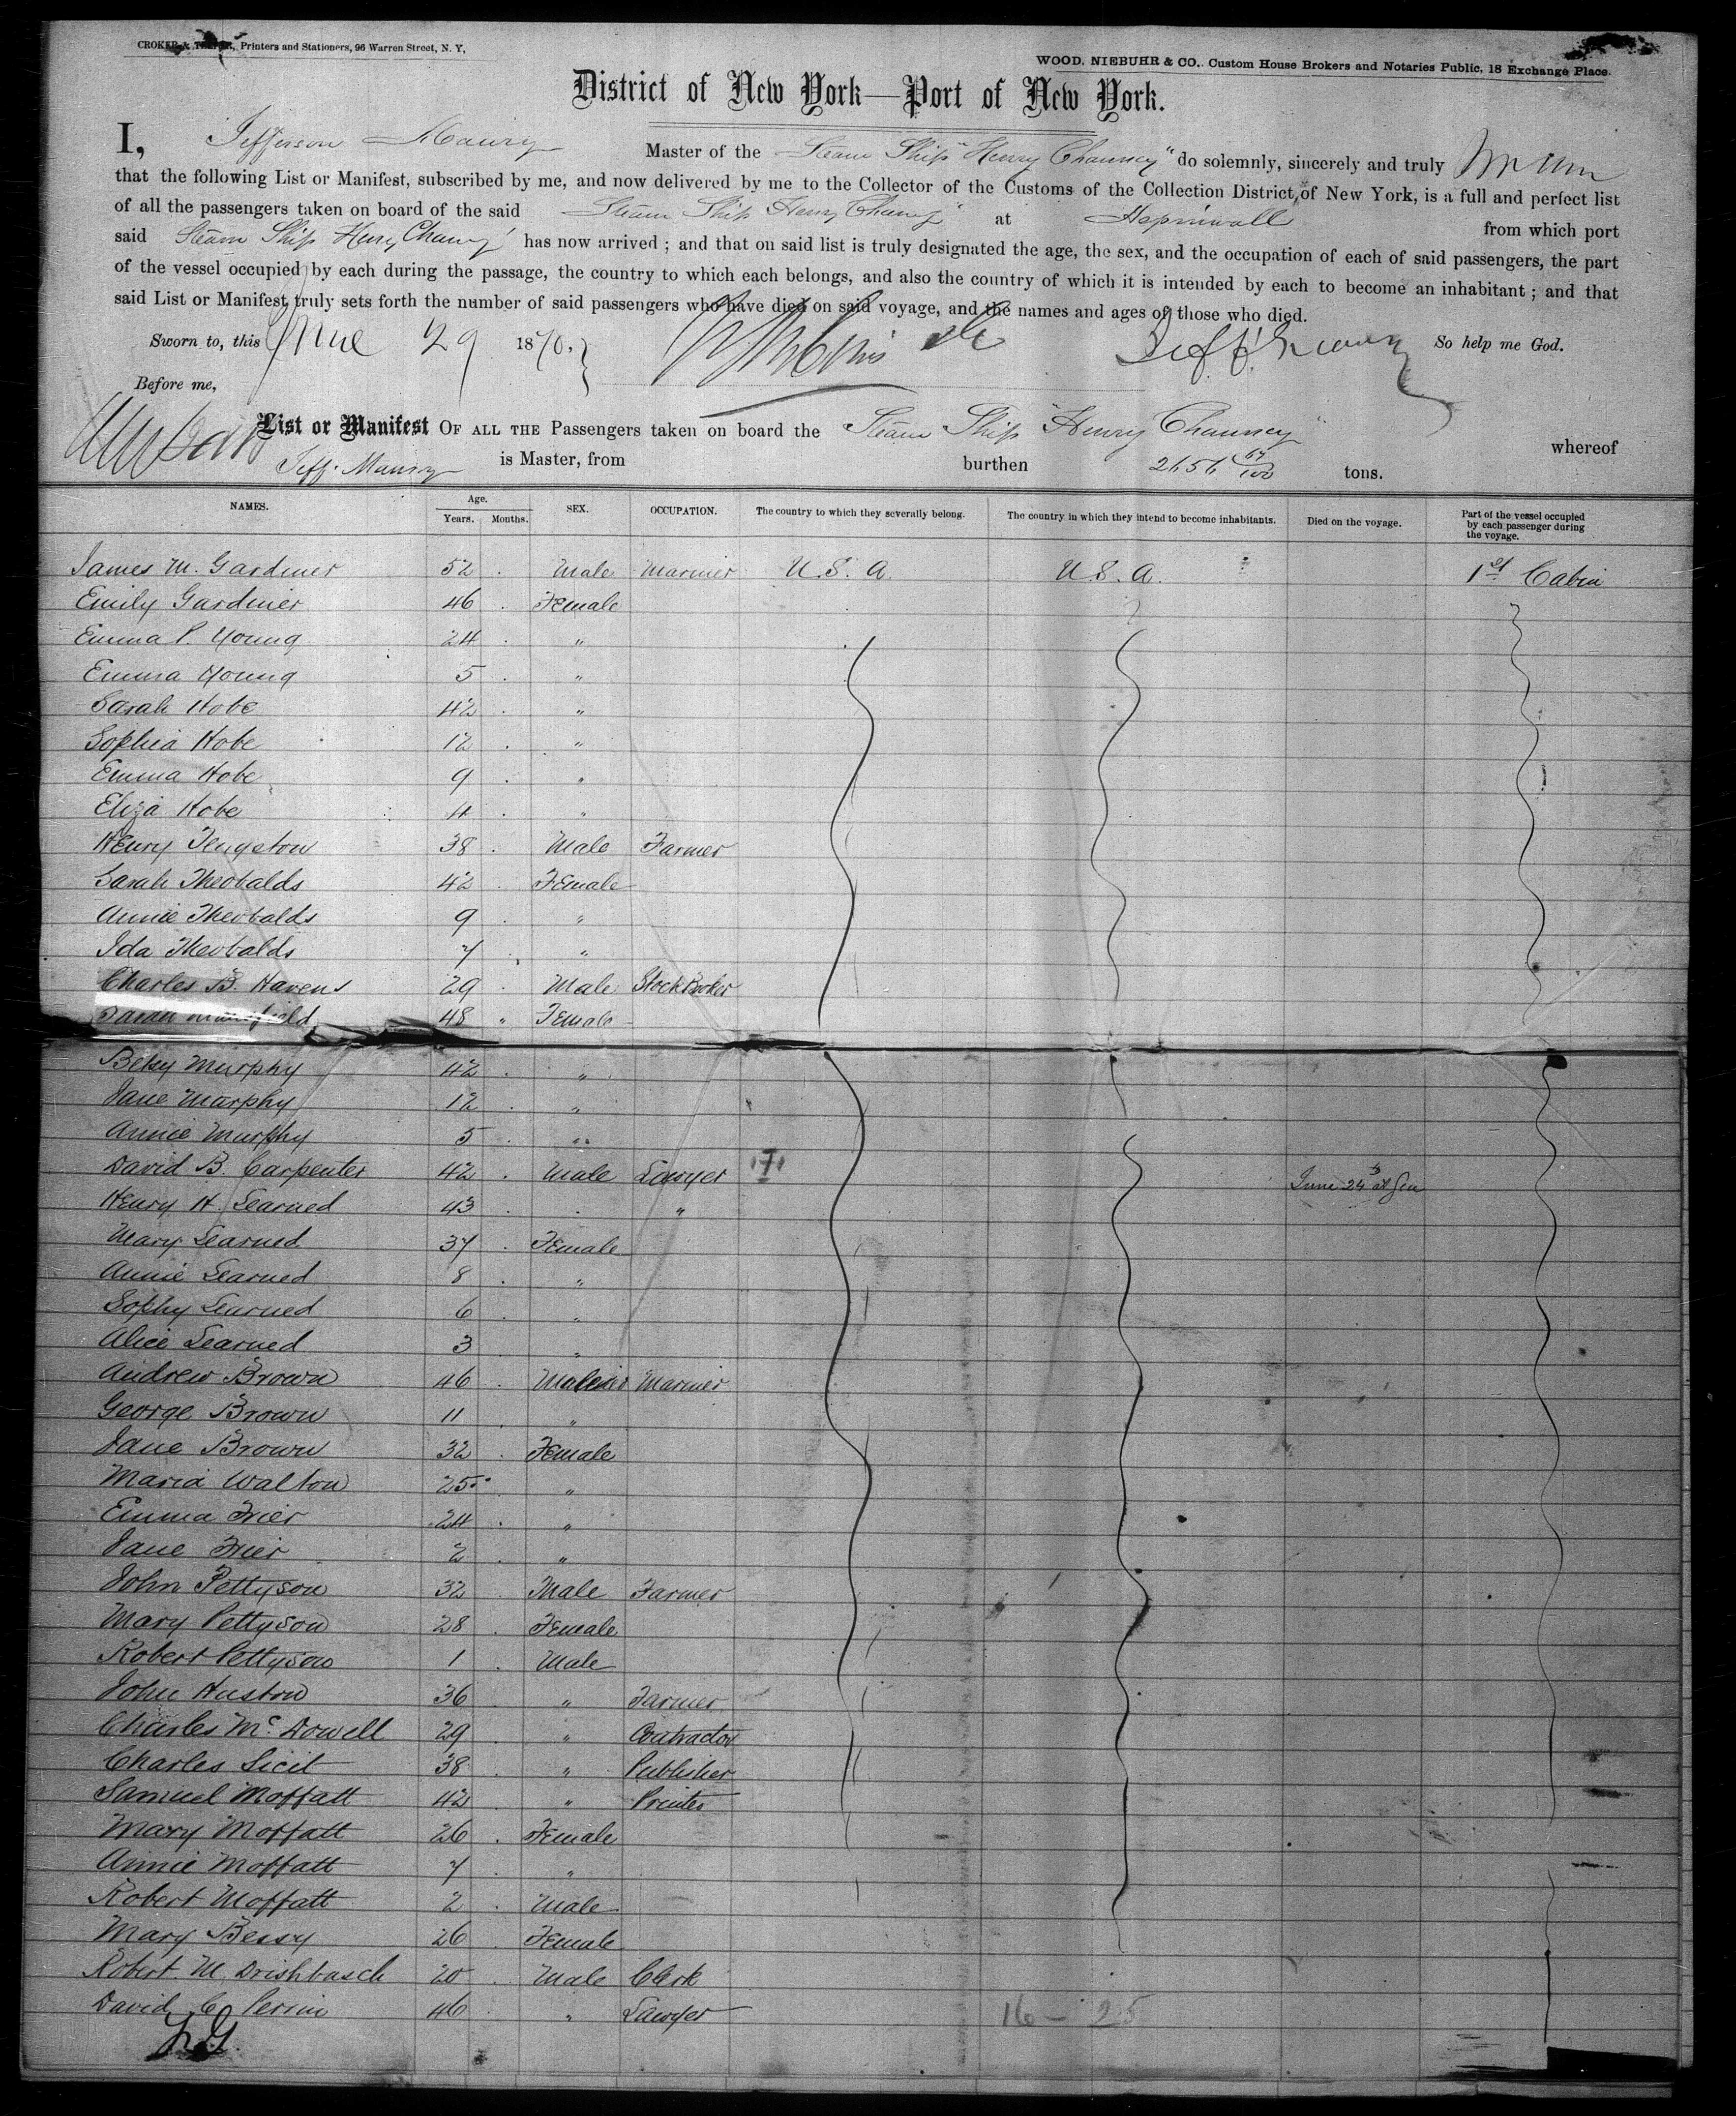 CROKER & , Printers and Stationers, 96 Warren Street, N. Y,
WOOD, NIEBUHR & CO., Custom House Brokers and Notaries Public, 18 Exchange Place.
District of New York—Port of New York.
I, Jefferson Maury Master of the Steam Ship "Henry Chauncy" do solemnly, sincerely and truly
that the following List or Manifest, subscribed by me, and now delivered by me to the Collector of the Customs of the Collection District of New York, is a full and perfect list
of all the passengers taken on board of the said Steam Ship Henry Chauncy" at Aspinwall from which port
said Steam Ship Henry Chauncy has now arrived ; and that on said list is truly designated the age, the sex, and the occupation of each of said passengers, the part
of the vessel occupied by each during the passage, the country to which each belongs, and also the country of which it is intended by each to become an inhabitant ; and that
said List or Manifest truly sets forth the number of said passengers who have died on said voyage, and the names and ages of those who died.
Sworn to, this June 29 1870. Jeff. Maury So help me God.
Before me,
List or Manifest OF ALL THE Passengers taken on board the Steam Ship "Henry Chauncy" whereof
Jeff. Maury is Master, from burthen 2656 64/100 tons.
NAMES. Age. Years. Months. SEX. OCCUPATION. The country to which they severally belong. The country in which they intend to become inhabitants. Died on the voyage. Part of the vessel occupied by each passenger during the voyage.
James M. Gardiner 52 Male Mariner U. S. A. U. S. A. 1st Cabin
Emily Gardiner 46 Female
Emma P. Young 24 "
Emma Young 5 "
Sarah Hobe 42 "
Sophia Hobe 12 "
Emma Hobe 9 "
Eliza Hobe 4 "
Henry Tengstow 38 Male Farmer
Sarah Theobalds 42 Female
Annie Theobalds 9 "
Ida Theobalds 7 "
Charles B. Havens 29 Male Stock Broker
Sarah Mansfield 48 " Female
Betsy Murphy 42 "
Jane Murphy 12 "
Annie Murphy 5 "
David B. Carpenter 42 Male Lawyer June 24th at Sea
Henry H. Learned 43 "
Mary Learned 37 Female
Annie Learned 8 "
Sophy Learned 6 "
Alice Learned 3 "
Andrew Brown 46 Male Mariner
George Brown 11 "
Jane Brown 32 Female
Maria Walton 25 "
Emma Frier 24 "
Jane Frier 2 "
John Pettyson 32 Male Farmer
Mary Pettyson 28 Female
Robert Pettyson 1 Male
John Huston 36 " Farmer
Charles McDowell 29 " Contractor
Charles Sicit 38 " Publisher
Samuel Moffatt 42 " Printer
Mary Moffatt 26 Female
Annie Moffatt 7 "
Robert Moffatt 2 Male
Mary Bessy 26 Female
Robert M. Drishbasch 20 Male Clerk
David C. Perrin 46 " Lawyer
16 - 25